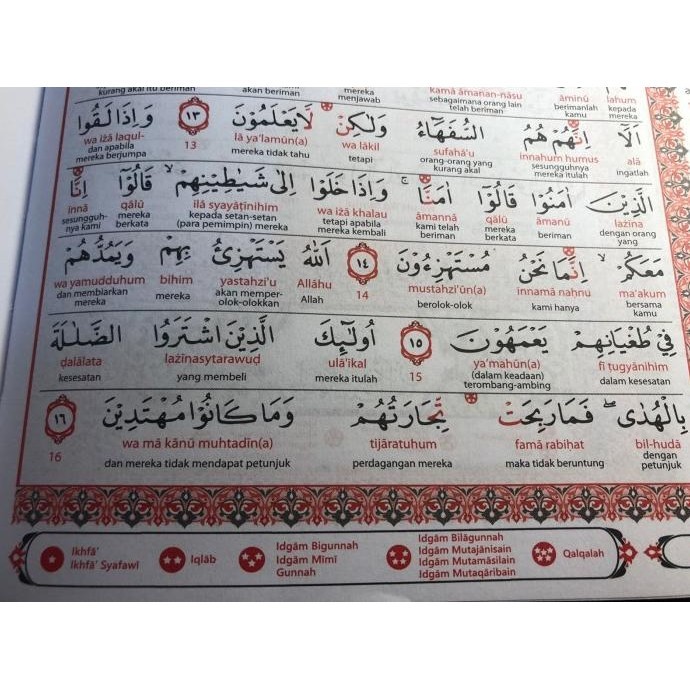 kurang akal itu beriman akan beriman mereka menjawab kamā āmanan-nāsu sebagaimana orang lain telah beriman āminū berimanlah kamu lahum kepada mereka
اَلَآ اِنَّهُمْ هُمُ السُّفَهَاۤءُ وَلٰكِنْ لَّا يَعْلَمُوْنَ ١٣ وَاِذَا لَقُوا
alā innahum humus sufahā'u wa lākil lā ya'lamūn(a) 13 wa iżā laqul-
ingatlah sesungguhnya mereka itulah orang-orang yang kurang akal tetapi mereka tidak tahu dan apabila mereka berjumpa
الَّذِيْنَ اٰمَنُوْا قَالُوْٓا اٰمَنَّا ۚ وَاِذَا خَلَوْا اِلٰى شَيٰطِيْنِهِمْ ۙ قَالُوْٓا اِنَّا
lażīna āmanū qālū āmannā wa iżā khalau ilā syayāṭīnihim qālū innā
dengan orang yang beriman mereka berkata kami telah beriman tetapi apabila mereka kembali kepada setan-setan (para pemimpin) mereka mereka berkata sesungguh-nya kami
مَعَكُمْ ۙ اِنَّمَا نَحْنُ مُسْتَهْزِءُوْنَ ١٤ اَللّٰهُ يَسْتَهْزِئُ بِهِمْ وَيَمُدُّهُمْ
ma'akum innamā naḥnu mustahzi'ūn(a) 14 Allāhu yastahzi'u bihim wa yamudduhum
bersama kamu kami hanya berolok-olok Allah akan memper-olok-olokkan mereka dan membiarkan mereka
فِيْ طُغْيَانِهِمْ يَعْمَهُوْنَ ١٥ اُولٰۤىِٕكَ الَّذِيْنَ اشْتَرَوُا الضَّلٰلَةَ
fī ṭugyānihim ya'mahūn(a) 15 ulā'ikal lażīnasytarawuḍ ḍalālata
dalam kesesatan (dalam keadaan) terombang-ambing mereka itulah yang membeli kesesatan
بِالْهُدٰىۖ فَمَا رَبِحَتْ تِّجَارَتُهُمْ وَمَا كَانُوْا مُهْتَدِيْنَ ١٦
bil-hudā famā rabiḥat tijāratuhum wa mā kānū muhtadīn(a) 16
dengan petunjuk maka tidak beruntung perdagangan mereka dan mereka tidak mendapat petunjuk
Ikhfā'
Ikhfā' Syafawī
Iqlāb
Idgām Bigunnah
Idgām Mīmī
Gunnah
Idgām Bilāgunnah
Idgām Mutajānisain
Idgām Mutamāsilain
Idgām Mutaqāribain
Qalqalah